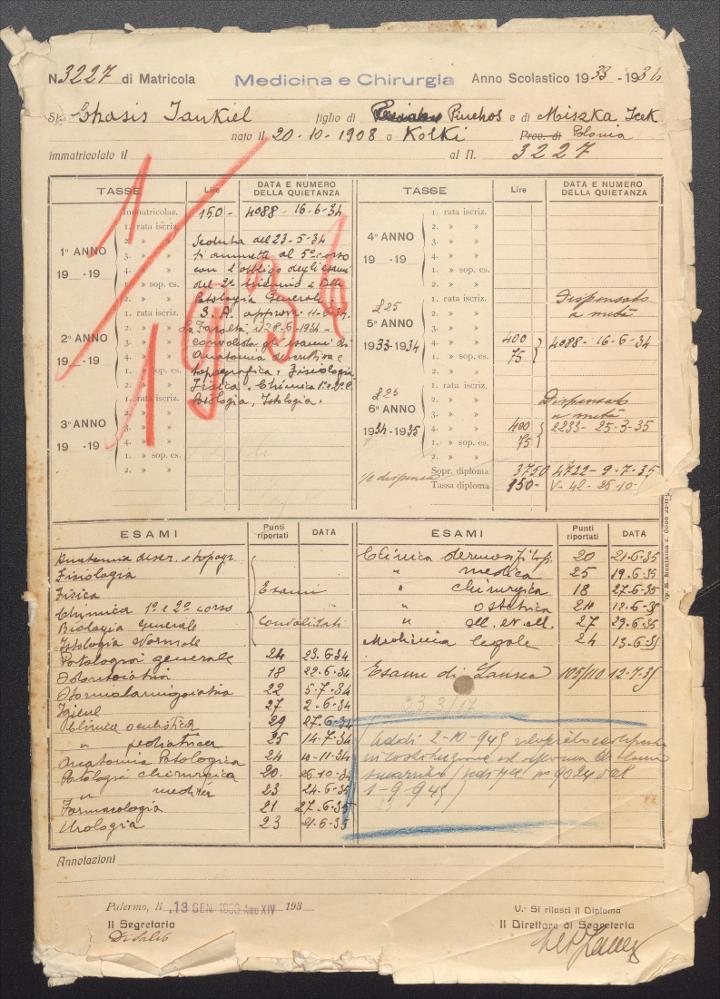 N. 3227 di Matricola Medicina e Chirurgia Anno Scolastico 1933-1934
Sig. Chasis Jankiel figlio di Pinchos e di Miszka Icek
nato il 20-10-1908 a Kolki Prov. di Polonia
immatricolato il al N. 3227
TASSE Lire DATA E NUMERO DELLA QUIETANZA
Immatricolaz. 150- 4088 - 16-6-34
1° ANNO
19 -19
1. rata iscriz.
2. » »
3. » »
4. » »
» sop. es.
2° ANNO
19 -19
1. rata iscriz.
2. » »
3. » »
4. » »
» sop. es.
3° ANNO
19 -19
1. rata iscriz.
2. » »
3. » »
4. » »
» sop. es.
Seduta del 23-5-34
si ammetti al 5° corso
con l'obbligo degli esami
del 2° biennio e della
Patologia Generale
S. A. approva 11-6-34
La Facoltà, il 28-6-1934
convalida gli esami di
Anatomia descrittiva e
topografica, Fisiologia
Fisica, Chimica 1° e 2° C.
Biologia, Istologia.
1936
TASSE Lire DATA E NUMERO DELLA QUIETANZA
4° ANNO
19 -19
1. rata iscriz.
2. » »
3. » »
4. » »
» sop. es.
225
5° ANNO
1933-1934
1. rata iscriz.
2. » » Dispensato
3. » » a metà
4. » » 400 4088-16-6-34
» sop. es. 75
225
6° ANNO
1934-1935
1. rata iscriz.
2. » » Dispensato
3. » » a metà
4. » » 400 2233- 25-3-35
» sop. es. 75
Sopr. diploma 3750 4722-9-7-35
Tassa diploma 150- V-42-25-10-
ESAMI Punti riportati DATA
Anatomia descr. e topogr.
Fisiologia
Fisica Esami
Chimica 1° e 2° corso
Biologia generale Convalidati
Istologia Normale
Patologia generale 24 23-6-34
Odontoiatria 18 22-6-34
Otorinolaringoiatria 22 5-7-34
Igiene 27 2-6-34
Clinica oculistica 29 27-6-34
" pediatrica 25 14-7-34
Anatomia Patologica 24 10-11-34
Patologia chirurgica 20. 26-10-34
" medica 23 24-6-35
Farmacologia 21 27-6-35
Urologia 23 21-6-35
ESAMI Punti riportati DATA
Clinica dermosifilop. 20 21-6-35
" medica 25 19-6-35
" chirurgica 18 27-6-35
" ostetrica 24 18-6-35
" M. N. e M. 27 29-6-35
Medicina legale 24 13-6-35
Esami di Laurea 105/110 12-7-35
Addì 2-10-945
in sostituzione del diploma di laurea
smarrito 9024
1-9-945)
Annotazioni
Palermo, li 13 GEN. 1936 Anno XIV 193
Il Segretario
V.° Si rilasci il Diploma
Il Direttore di Segreteria